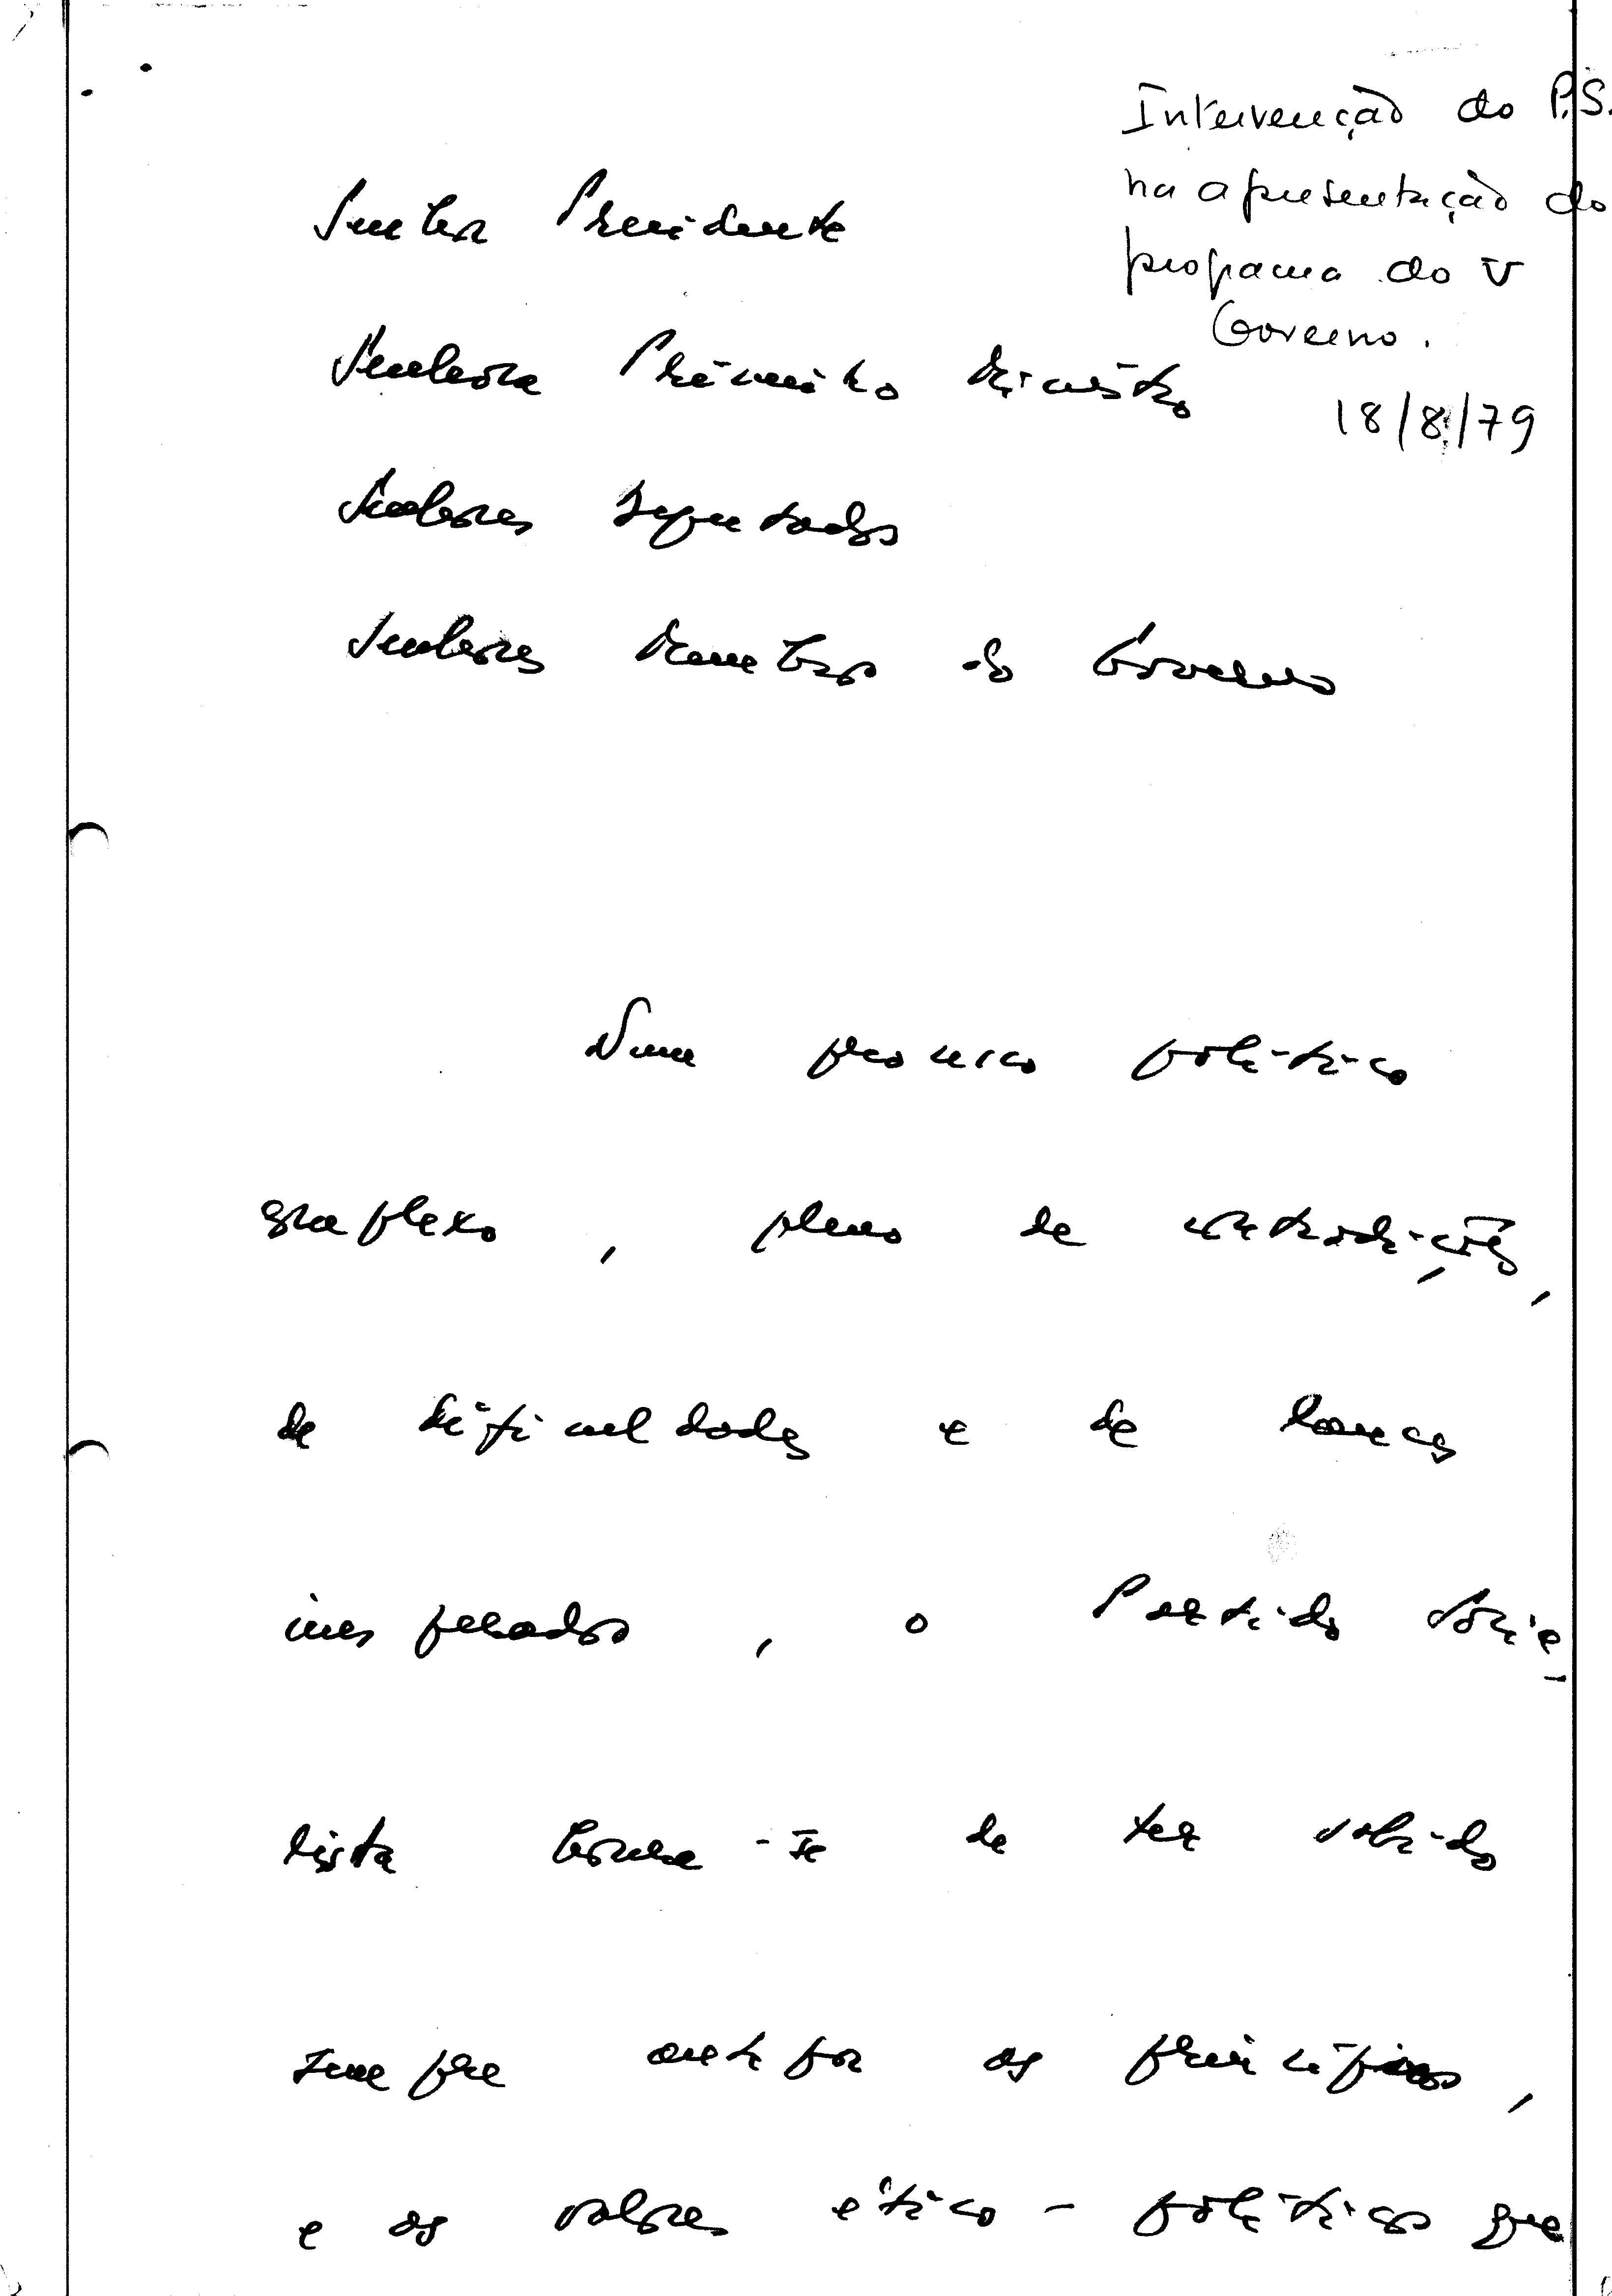 Intervenção do P.S.
na apresentação do
programa do V
Governo.
18/8/79
Senhor Presidente
Senhora Primeiro Ministro
Senhores Deputados
Senhores Membros do Governo
Num processo político
complexo, pleno de contradições,
de dificuldades e de lances
inesperados, o Partido Socia-
lista honra-se de ter sabido
sempre antepor os princípios,
e os valores ético-políticos que